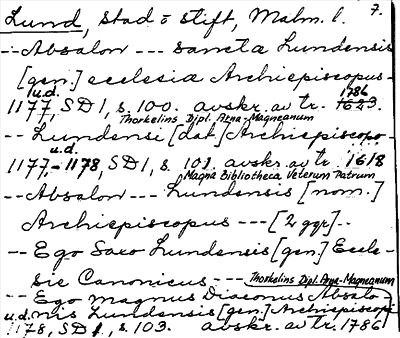 Lund, stad o stift, Malm. l. 7.
-- Absalon --- sancta Lundensis
[gen.] ecclesiæ Archiepiscopus -
u.d. 1786
1177, SD 1, s. 100. avskr. av tr. 1623.
Thorkelins Dipl. Arne-Magneanum
-- Lundensi [dat.] Archiepiscopo -
u.d.
1177-1178, SD 1, s. 101. avskr. av tr. 1618
Magna Bibliotheca Veterum Patrum
-- Absalon --- Lundensis [nom.]
Archiepiscopus --- [2 ggr] --
-- Ego Saxo Lundensis [gen.] Eccle-
sie Canonicus ---- Thorkelins Dipl. Arne-Magneanum
-- Ego Magnus Diaconus Absalo-
nis Lundensis [gen.] Archiepiscopi
u.d. 1178, SD 1, s. 103. avskr. av tr. 1786